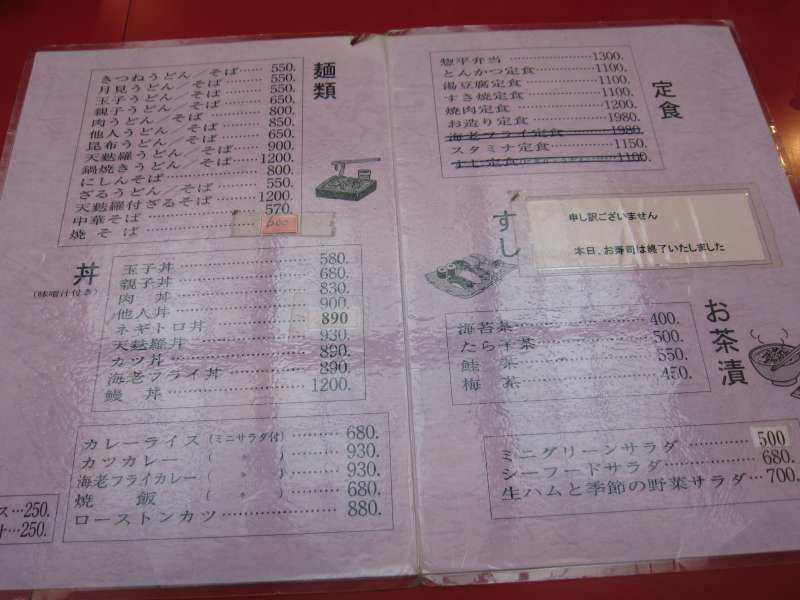 麺類
きつねうどん／そば……550.
月見うどん／そば……550.
玉子うどん／そば……550.
親子うどん／そば……650.
肉うどん／そば……800.
他人うどん／そば……850.
昆布うどん／そば……650.
天麩羅うどん／そば……900.
鍋焼きうどん……1200.
にしんそば……800.
ざるうどん／そば……550.
天麩羅付ざるそば……1200.
中華そば……570.
焼そば……600
丼
(味噌汁付き)
玉子丼……580.
親子丼……680.
肉丼……830.
他人丼……900.
ネギトロ丼……890
天麩羅丼……930.
カツ丼……890.
海老フライ丼……890.
鰻丼……1200.
カレーライス(ミニサラダ付)……680.
カツカレー(〃)……930.
海老フライカレー(〃)……930.
焼飯(〃)……680.
ローストンカツ……880.
ス…250.
250.
定食
惣平弁当……1300.
とんかつ定食……1100.
湯豆腐定食……1100.
すき焼定食……1100.
焼肉定食……1200.
お造り定食……1980.
海老フライ定食……1980.
スタミナ定食……1150.
すし定食……1100.
すし
申し訳ございません
本日、お寿司は終了いたしました
お茶漬
海苔茶……400.
たらこ茶……500.
鮭茶……550.
梅茶……450.
ミニグリーンサラダ……500
シーフードサラダ……680.
生ハムと季節の野菜サラダ…700.